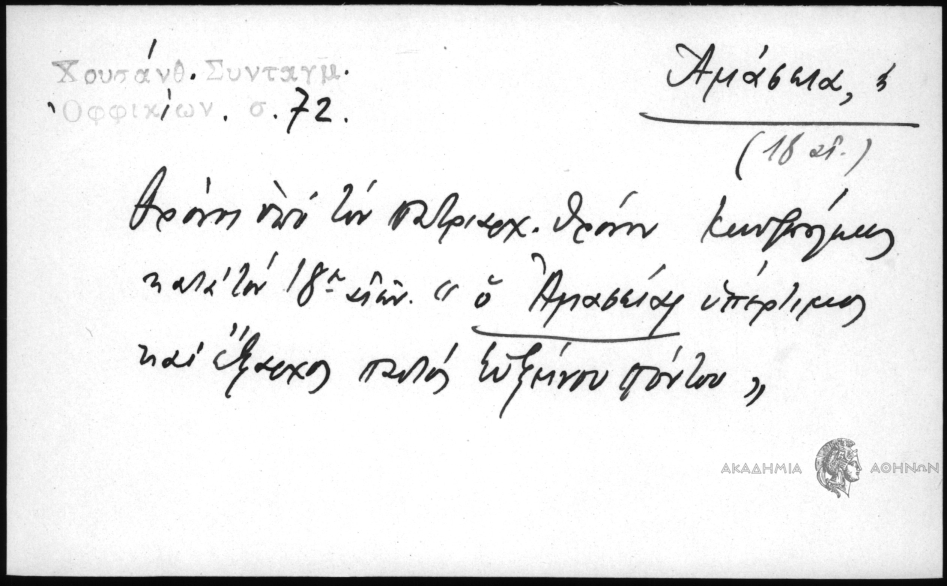 Χρυσάνθ. Συνταγμ.
Ὀφφικίων. σ. 72.
Ἀμάσεια, ἡ
(18 αἰ.)
Θρόνος ὑπό τόν πατριαρχ. θρόνον Κων/πόλεως
κατά τόν 18ον αἰῶν. "ὁ Ἀμασείας ὑπέρτιμος
καί ἔξαρχος παντός Εὐξείνου πόντου"
ΑΚΑΔΗΜΙΑ ΑΘΗΝΩΝ